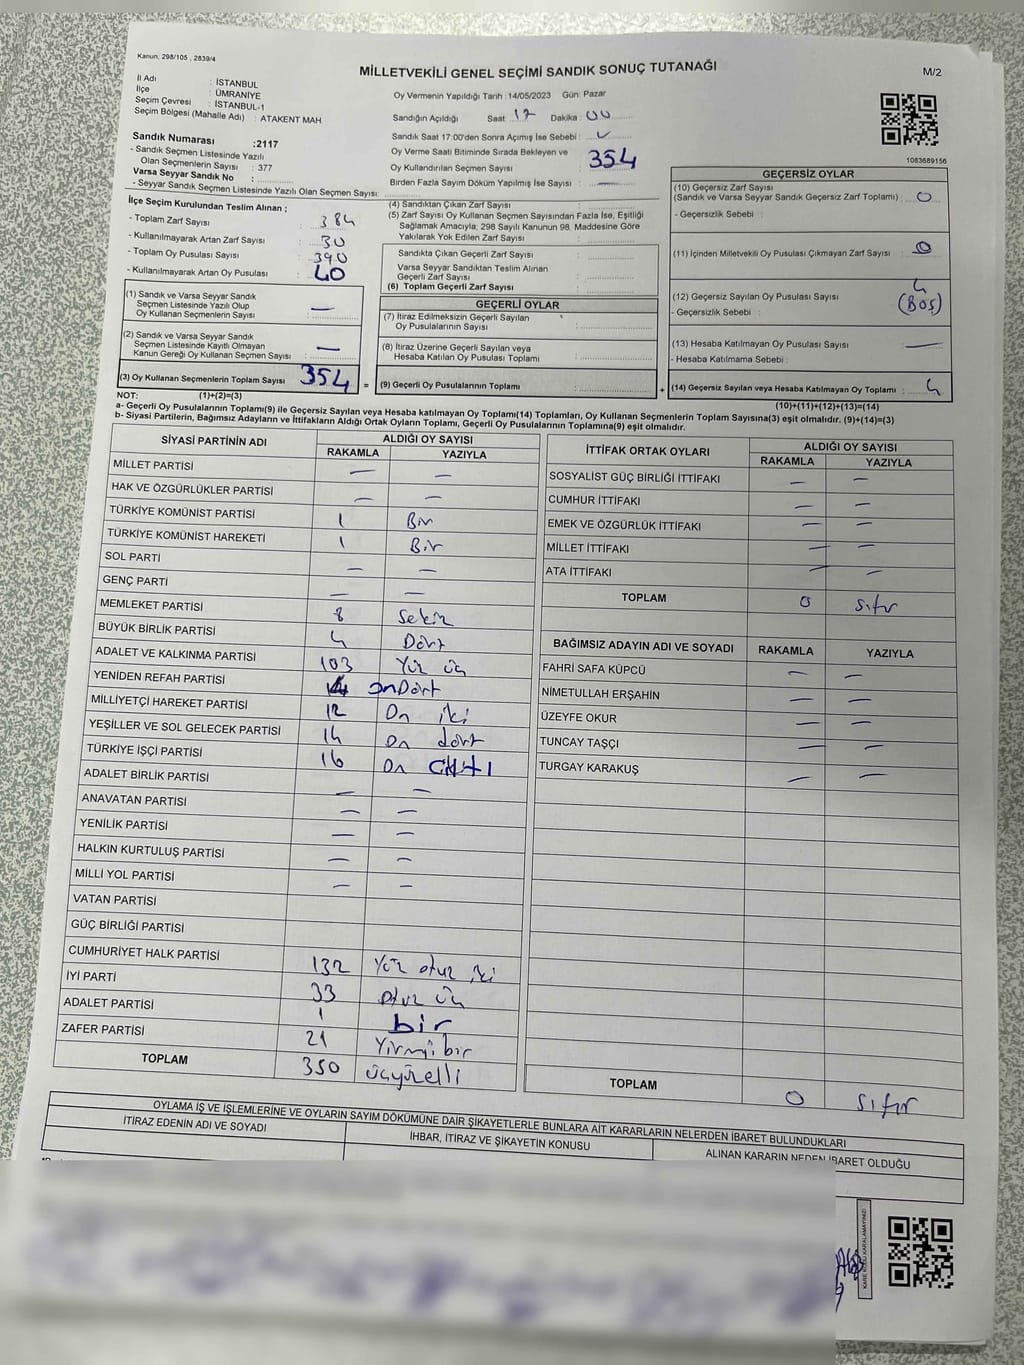 Kanun, 298/105 , 2839/4
MİLLETVEKİLİ GENEL SEÇİMİ SANDIK SONUÇ TUTANAĞI
M/2
İl Adı : İSTANBUL
İlçe : ÜMRANİYE
Seçim Çevresi : İSTANBUL-1
Seçim Bölgesi (Mahalle Adı) : ATAKENT MAH
Sandık Numarası :2117
- Sandık Seçmen Listesinde Yazılı
Olan Seçmenlerin Sayısı : 377
Varsa Seyyar Sandık No :
- Seyyar Sandık Seçmen Listesinde Yazılı Olan Seçmen Sayısı:
Oy Vermenin Yapıldığı Tarih :14/05/2023 Gün: Pazar
Sandığın Açıldığı Saat : 17 Dakika : 00
Sandık Saat 17:00'den Sonra Açımış İse Sebebi :
Oy Verme Saati Bitiminde Sırada Bekleyen ve
Oy Kullandırılan Seçmen Sayısı : 354
Birden Fazla Sayım Döküm Yapılmış İse Sayısı : —
1083689156
İlçe Seçim Kurulundan Teslim Alınan ;
- Toplam Zarf Sayısı : 384
- Kullanılmayarak Artan Zarf Sayısı : 30
- Toplam Oy Pusulası Sayısı : 390
- Kullanılmayarak Artan Oy Pusulası : 40
(1) Sandık ve Varsa Seyyar Sandık
Seçmen Listesinde Yazılı Olup
Oy Kullanan Seçmenlerin Sayısı : —
(2) Sandık ve Varsa Seyyar Sandık
Seçmen Listesinde Kayıtlı Olmayan
Kanun Gereği Oy Kullanan Seçmen Sayısı : —
(3) Oy Kullanan Seçmenlerin Toplam Sayısı 354 =
(4) Sandıktan Çıkan Zarf Sayısı :
(5) Zarf Sayısı Oy Kullanan Seçmen Sayısından Fazla İse, Eşitliği
Sağlamak Amacıyla; 298 Sayılı Kanunun 98. Maddesine Göre
Yakılarak Yok Edilen Zarf Sayısı :
Sandıkta Çıkan Geçerli Zarf Sayısı :
Varsa Seyyar Sandıktan Teslim Alınan
Geçerli Zarf Sayısı :
(6) Toplam Geçerli Zarf Sayısı :
GEÇERLİ OYLAR
(7) İtiraz Edilmeksizin Geçerli Sayılan
Oy Pusulalarının Sayısı :
(8) İtiraz Üzerine Geçerli Sayılan veya
Hesaba Katılan Oy Pusulası Toplamı :
(9) Geçerli Oy Pusulalarının Toplamı : +
GEÇERSİZ OYLAR
(10) Geçersiz Zarf Sayısı
(Sandık ve Varsa Seyyar Sandık Geçersiz Zarf Toplamı) : 0
- Geçersizlik Sebebi :
(11) İçinden Milletvekili Oy Pusulası Çıkmayan Zarf Sayısı : 0
(12) Geçersiz Sayılan Oy Pusulası Sayısı : 4
- Geçersizlik Sebebi : (Boş)
(13) Hesaba Katılmayan Oy Pusulası Sayısı : —
- Hesaba Katılmama Sebebi :
(14) Geçersiz Sayılan veya Hesaba Katılmayan Oy Toplamı : 4
NOT: (1)+(2)=(3)
(10)+(11)+(12)+(13)=(14)
a- Geçerli Oy Pusulalarının Toplamı(9) ile Geçersiz Sayılan veya Hesaba katılmayan Oy Toplamı(14) Toplamları, Oy Kullanan Seçmenlerin Toplam Sayısına(3) eşit olmalıdır. (9)+(14)=(3)
b- Siyasi Partilerin, Bağımsız Adayların ve İttifakların Aldığı Ortak Oyların Toplamı, Geçerli Oy Pusulalarının Toplamına(9) eşit olmalıdır.
SİYASİ PARTİNİN ADI ALDIĞI OY SAYISI
RAKAMLA YAZIYLA
MİLLET PARTİSİ — —
HAK VE ÖZGÜRLÜKLER PARTİSİ — —
TÜRKİYE KOMÜNİST PARTİSİ 1 Bir
TÜRKİYE KOMÜNİST HAREKETİ 1 Bir
SOL PARTİ — —
GENÇ PARTİ — —
MEMLEKET PARTİSİ 8 Sekiz
BÜYÜK BİRLİK PARTİSİ 4 Dört
ADALET VE KALKINMA PARTİSİ 103 Yüz üç
YENİDEN REFAH PARTİSİ 4 OnDört
MİLLİYETÇİ HAREKET PARTİSİ 12 On iki
YEŞİLLER VE SOL GELECEK PARTİSİ 14 On dört
TÜRKİYE İŞÇİ PARTİSİ 16 On altı
ADALET BİRLİK PARTİSİ — —
ANAVATAN PARTİSİ — —
YENİLİK PARTİSİ — —
HALKIN KURTULUŞ PARTİSİ — —
MİLLİ YOL PARTİSİ — —
VATAN PARTİSİ
GÜÇ BİRLİĞİ PARTİSİ
CUMHURİYET HALK PARTİSİ 132 Yüz otuz iki
İYİ PARTİ 33 Otuz üç
ADALET PARTİSİ 1 bir
ZAFER PARTİSİ 21 Yirmi bir
TOPLAM 350 üçyüzelli
İTTİFAK ORTAK OYLARI ALDIĞI OY SAYISI
RAKAMLA YAZIYLA
SOSYALİST GÜÇ BİRLİĞİ İTTİFAKI — —
CUMHUR İTTİFAKI — —
EMEK VE ÖZGÜRLÜK İTTİFAKI — —
MİLLET İTTİFAKI — —
ATA İTTİFAKI — —
TOPLAM 0 sıfır
BAĞIMSIZ ADAYIN ADI VE SOYADI RAKAMLA YAZIYLA
FAHRİ SAFA KÜPCÜ — —
NİMETULLAH ERŞAHİN — —
ÜZEYFE OKUR — —
TUNCAY TAŞÇI — —
TURGAY KARAKUŞ — —
TOPLAM 0 sıfır
OYLAMA İŞ VE İŞLEMLERİNE VE OYLARIN SAYIM DÖKÜMÜNE DAİR ŞİKAYETLERLE BUNLARA AİT KARARLARIN NELERDEN İBARET BULUNDUKLARI
İTİRAZ EDENİN ADI VE SOYADI İHBAR, İTİRAZ VE ŞİKAYETİN KONUSU ALINAN KARARIN NEDEN İBARET OLDUĞU